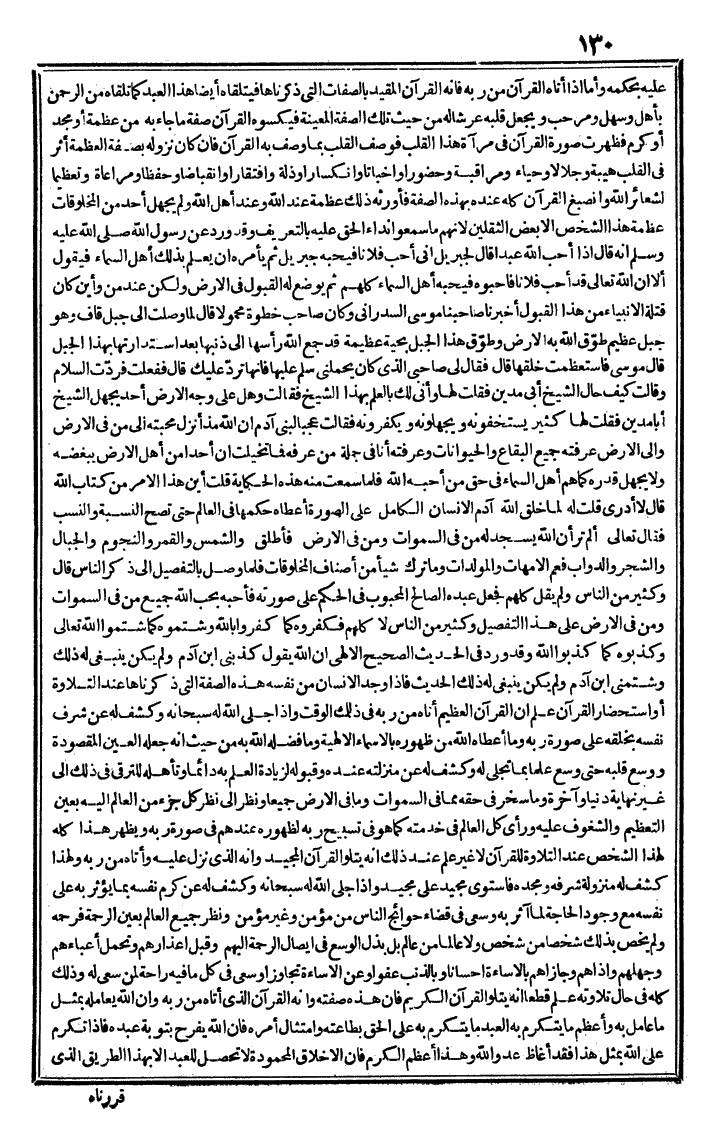 ١٣٠
عليه بحكمه وأما اذا أتاه القرآن من ربه فانه القرآن المقيد بالصفات التي ذكرناها فيتلقاه أيضا هذا العبد كما تلقاه من الرحمن
بأهل وسهل ومرحب ويجعل قلبه عرشا له من حيث تلك الصفة المعينة فيكسوه القرآن صفة ما جاء به من عظمة أو مجد
أو كرم فظهرت صورة القرآن في مرآة هذا القلب فوصف القلب بما وصف به القرآن فان كان نزوله بصفة العظمة أثر
في القلب هيبة وجلالا وحياء ومراقبة وحضورا واخباتا وانكسارا وذلة وافتقارا وانقباضا وحفظا ومراعاة وتعظيما
لشعائر الله وانصبغ القرآن كله عنده بهذه الصفة فأورثه ذلك عظمة عند الله وعند أهل الله ولم يجهل أحد من المخلوقات
عظمة هذا الشخص الا بعض الثقلين لانهم ما سمعوا نداء الحق عليه بالتعريف وقد ورد عن رسول الله صلى الله عليه
وسلم انه قال اذا أحب الله عبدا قال لجبريل انى أحب فلانا فيحبه جبريل ثم يأمره ان يعلم بذلك أهل السماء فيقول
ألا ان الله تعالى قد أحب فلانا فاحبوه فيحبه أهل السماء كلهم ثم يوضع له القبول في الارض ولكن عند من وأين كان
قتلة الانبياء من هذا القبول أخبرنا صاحبنا موسى السدراني وكان صاحب خطوة محمولا قال لما وصلت الى جبل قاف وهو
جبل عظيم طوّق الله به الارض وطوّق هذا الجبل بحية عظيمة قد جمع الله رأسها الى ذنبها بعد استدارتها بهذا الجبل
قال موسى فاستعظمت خلقها قال فقال لى صاحبى الذى كان يحملنى سلم عليها فانها تردّ عليك قال ففعلت فردّت السلام
وقالت كيف حال الشيخ أبى مدين فقلت لها وأنى لك بالعلم بهذا الشيخ فقالت وهل على وجه الارض أحد يجهل الشيخ
أبا مدين فقلت لها كثير يستخفونه ويجهلونه ويكفرونه فقالت عجبا لبنى آدم ان الله مذ أنزل محبته الى من فى الارض
والى الارض عرفته جميع البقاع والحيوانات وعرفته أنا فى جملة من عرفه فما تخيلت ان أحدا من أهل الارض يبغضه
ولا يجهل قدره كما هم أهل السماء فى حق من أحبه الله فلما سمعت منه هذه الحكاية قلت أين هذا الامر من كتاب الله
قال لا أدرى قلت له لما خلق الله آدم الانسان الكامل على الصورة أعطاه حكمها فى العالم حتى تصح النسبة والنسب
فقال تعالى ألم تر أن الله يسجد له من فى السموات ومن فى الارض فأطلق والشمس والقمر والنجوم والجبال
والشجر والدواب فعم الامهات والمولدات وما ترك شيأ من أصناف المخلوقات فلما وصل بالتفصيل الى ذكر الناس قال
وكثير من الناس ولم يقل كلهم فجعل عبده الصالح المحبوب فى الحكم على صورته فأحبه بحب الله جميع من فى السموات
ومن فى الارض على هذا التفصيل وكثير من الناس لا كلهم فكفروه كما كفروا بالله وشتموه كما شتموا الله تعالى
وكذبوه كما كذبوا الله وقد ورد فى الحديث الصحيح الالهى ان الله يقول كذبنى ابن آدم ولم يكن ينبغى له ذلك
وشتمنى ابن آدم ولم يكن ينبغى له ذلك الحديث فاذا وجد الانسان من نفسه هذه الصفة التى ذكرناها عند التلاوة
أو استحضار القرآن علم ان القرآن العظيم أتاه من ربه فى ذلك الوقت واذا جلى الله له سبحانه وكشف له عن شرف
نفسه بخلقه على صورة ربه وما أعطاه الله من ظهوره بالاسماء الالهية وما فضله الله به من حيث انه جعله العين المقصودة
ووسع قلبه حتى وسع علما بما تجلى له وكشف له عن منزلته عنده وقبوله لزيادة العلم به دائما وتأهله للترقى فى ذلك الى
غير نهاية دنيا وآخرة وما سخر فى حقه مما فى السموات وما فى الارض جميعا ونظر الى نظر كل جزء من العالم اليه بعين
التعظيم والشغوف عليه ورأى كل العالم فى خدمته كما هو فى تسبيح ربه لظهوره عندهم فى صورة ربه ويظهر هذا كله
لهذا الشخص عند التلاوة للقرآن لا غير علم عند ذلك انه يتلو القرآن المجيد وانه الذى نزل عليه وأتاه من ربه ولهذا
كشف له منزولة شرفه ومجده فاستوى مجيد على مجيد واذا جلى الله له سبحانه وكشف له عن كرم نفسه بما يؤثر به على
نفسه مع وجود الحاجة لما آثر به وسعى فى قضاء حوائج الناس من مؤمن وغير مؤمن ونظر جميع العالم بعين الرحمة فرحمه
ولم يخص بذلك شخصا من شخص ولا عالما من عالم بل بذل الوسع فى ايصال الرحمة اليهم وقبل اعذارهم وتحمل أعباءهم
وجهلهم واذاهم وجازاهم بالاساءة احسانا وبالذنب عفوا وعن الاساءة تجاوزا وسعى فى كل ما فيه راحة لمن سعى له وذلك
كله فى حال تلاوته علم قطعا انه يتلو القرآن الكريم فان هذه صفته وانه القرآن الذى أتاه من ربه وان الله يعامله بمثل
ما عامل به وأعظم ما يتكرم به العبد ما يتكرم به على الحق بطاعته وامتثال أمره فان الله يفرح بتوبة عبده فاذا تكرم
على الله بمثل هذا فقد أغاظ عدو الله وهذا أعظم الكرم فان الاخلاق المحمودة لا تحصل للعبد الا بهذا الطريق الذى
قررناه